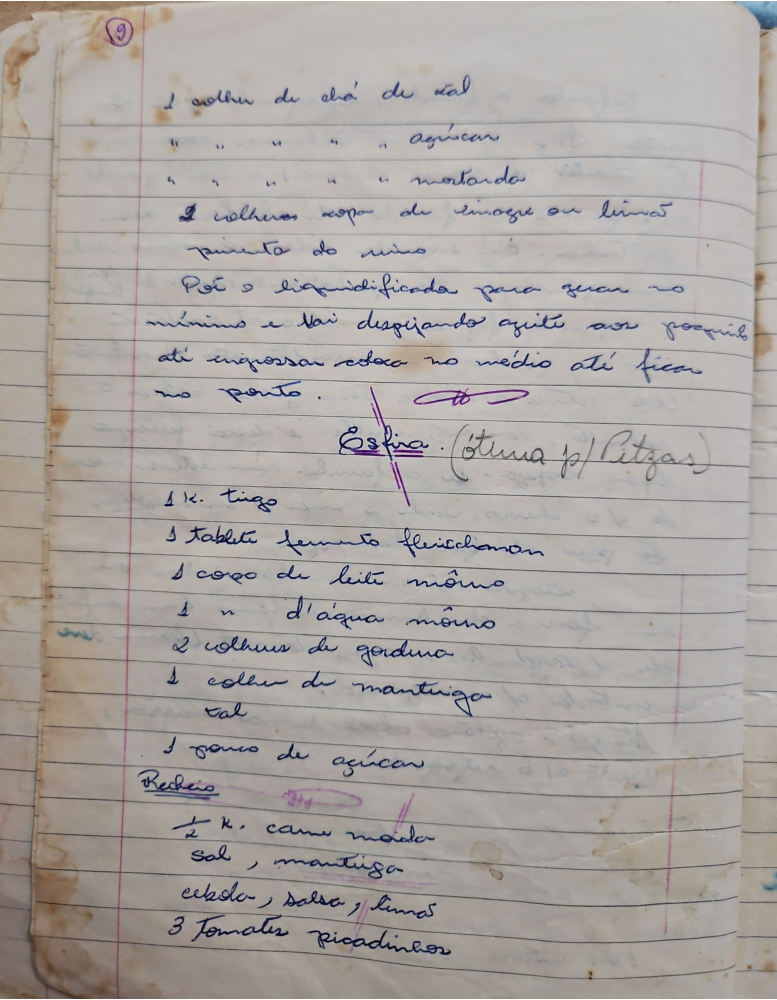 9
1 colher de chá de sal
" " " " " açúcar
" " " " " mostarda
2 colheres sopa de vinagre ou limão
pimenta do reino
Põe o liquidificador para girar no
mínimo e vai despejando azeite aos poquinhos
até engrossar coloca no médio até ficar
no ponto.
Esfira. (ótima p/ Pitzas)
1 K. trigo
1 tablete fermento fleischmann
1 copo de leite môrno
1 " d'água môrno
2 colheres de gordura
1 colher de manteiga
sal
1 pouco de açúcar
Recheio
1/2 K. carne moída
sal, manteiga
cebola, salsa, limão
3 Tomates picadinhos